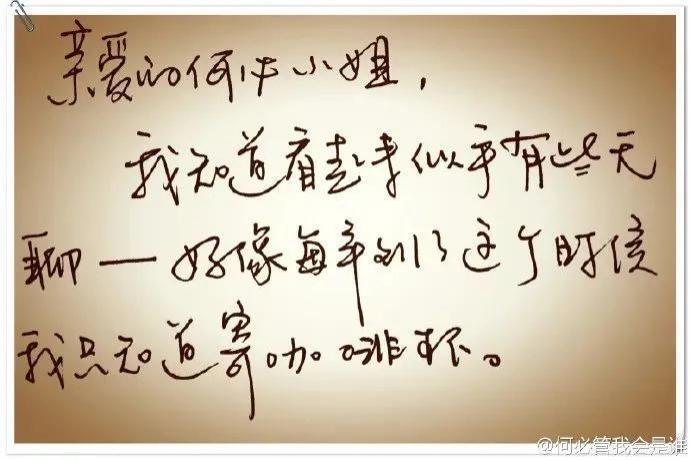 亲爱的何止小姐，
我知道看起来似乎有些无
聊一好像每年到了这个时候
我只知道寄咖啡杯。
@何必管我会是谁